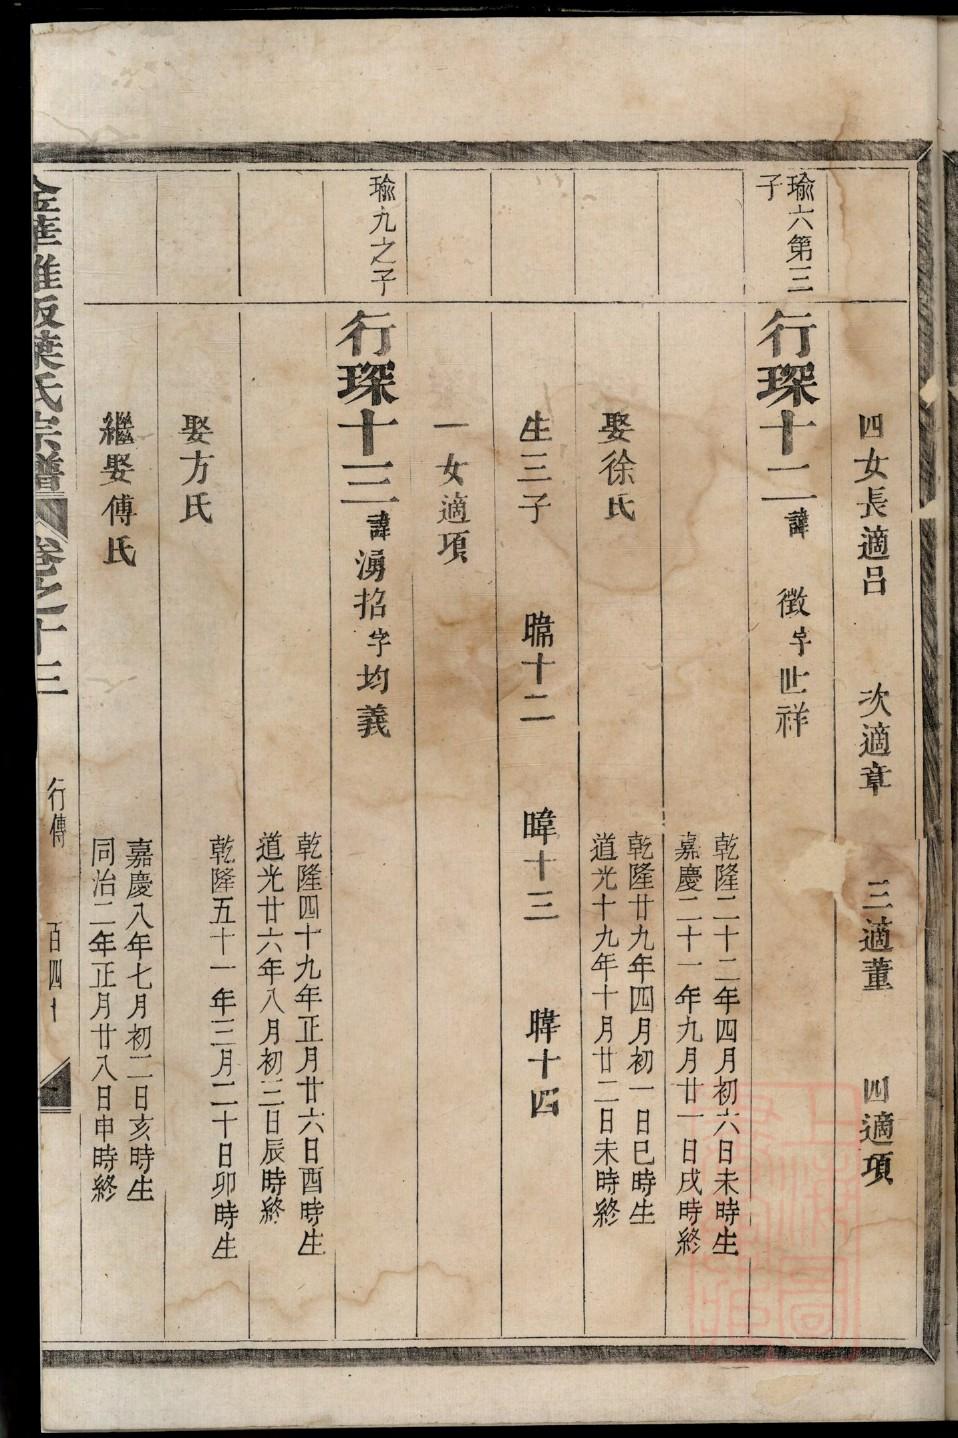 四女長適呂　次適章　三適董　四適項
瑜六第三子
行琛十二諱　徵字世祥
乾隆二十二年四月初六日未時生
嘉慶二十一年九月廿一日戌時終
娶徐氏
乾隆廿九年四月初一日巳時生
道光十九年十月廿二日未時終
生三子　暐十二　暐十三　暐十四
一女適項
瑜九之子
行琛十三諱湧招字均義
乾隆四十九年正月廿六日酉時生
道光廿六年八月初三日辰時終
娶方氏
乾隆五十一年三月二十日卯時生
繼娶傅氏
嘉慶八年七月初二日亥時生
同治二年正月廿八日申時終
金華雅畈葉氏宗譜　卷之十三　行傳　百四十